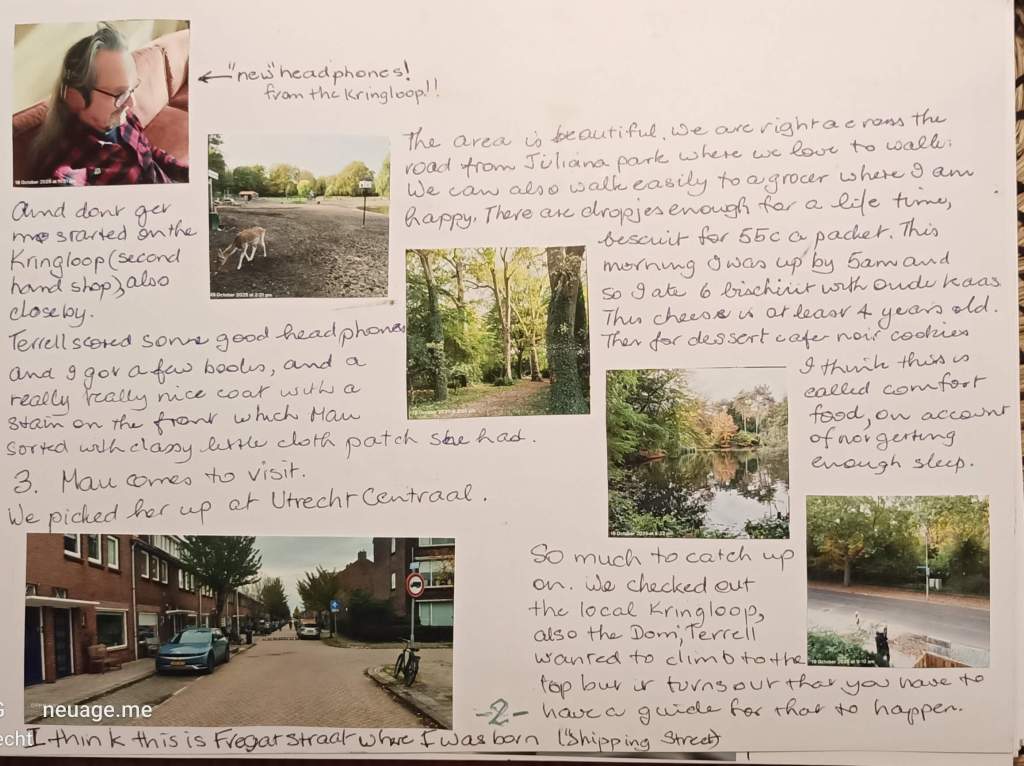 ← "new" headphones!
from the Kringloop!!
The area is beautiful. We are right across the
road from Juliana park where we love to walk.
We can also walk easily to a grocer where I am
happy. There are dropjes enough for a life time,
bescuit for 55c a packet. This
morning I was up by 5am and
so I ate 6 bischuit with oude kaas.
This cheese is at least 4 years old.
Then for dessert cafe noir cookies
I think this is
called comfort
food, on account
of not getting
enough sleep.
And dont get
me started on the
Kringloop (second
hand shop), also
close by.
Terrell scored some good headphones
and I got a few books, and a
really really nice coat with a
stain on the front which Mau
sorted with classy little cloth patch she had.
3. Mau comes to visit.
We picked her up at Utrecht Centraal.
So much to catch up
on. We checked out
the local Kringloop,
also the Dom, Terrell
wanted to climb to the
top but it turns out that you have to
have a guide for that to happen.
-2-
neuage.me
I think this is Fregatstraat where I was born ("Shipping Street)